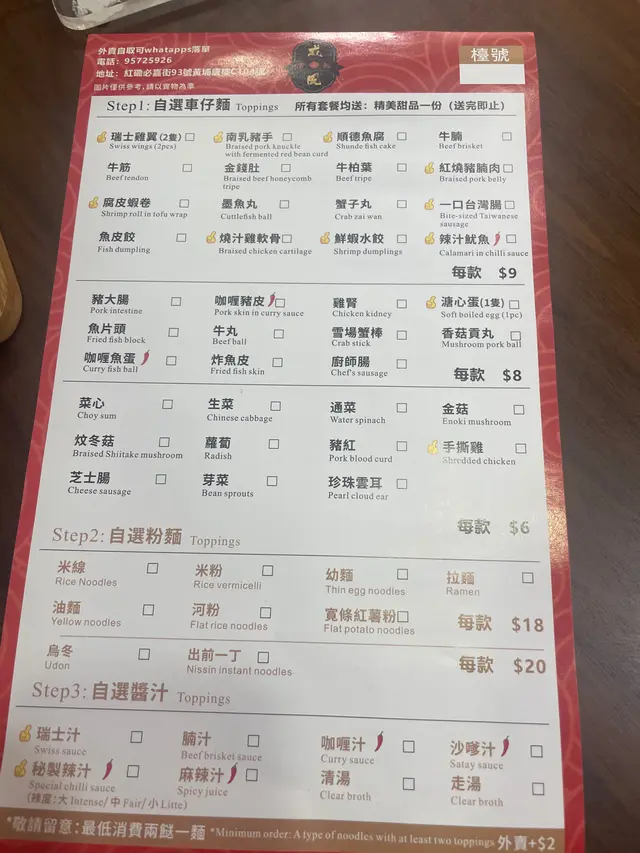 外賣自取可whatapps落單
電話：95725926
地址：紅磡必嘉街93號黃埔唐樓
圖片僅供參考,請以實物為準
威風
檯號
Step1:自選車仔麵 Toppings 所有套餐均送：精美甜品一份（送完即止）
瑞士雞翼(2隻) 南乳豬手 順德魚腐 牛腩
Swiss wings (2pcs) Braised pork knuckle with fermented red bean curd Shunde fish cake Beef brisket
牛筋 金錢肚 牛柏葉 紅燒豬腩肉
Beef tendon Braised beef honeycomb tripe Beef tripe Braised pork belly
腐皮蝦卷 墨魚丸 蟹子丸 一口台灣腸
Shrimp roll in tofu wrap Cuttlefish ball Crab zai wan Bite-sized Taiwanese sausage
魚皮餃 燒汁雞軟骨 鮮蝦水餃 辣汁魷魚
Fish dumpling Braised chicken cartilage Shrimp dumplings Calamari in chilli sauce
每款 $9
豬大腸 咖喱豬皮 雞腎 溏心蛋(1隻)
Pork intestine Pork skin in curry sauce Chicken kidney Soft boiled egg (1pc)
魚片頭 牛丸 雪場蟹棒 香菇貢丸
Fried fish block Beef ball Crab stick Mushroom pork ball
咖喱魚蛋 炸魚皮 廚師腸
Curry fish ball Fried fish skin Chef's sausage
每款 $8
菜心 生菜 通菜 金菇
Choy sum Chinese cabbage Water spinach Enoki mushroom
炆冬菇 蘿蔔 豬紅 手撕雞
Braised Shiitake mushroom Radish Pork blood curd Shredded chicken
芝士腸 芽菜 珍珠雲耳
Cheese sausage Bean sprouts Pearl cloud ear
每款 $6
Step2:自選粉麵 Toppings
米線 米粉 幼麵 拉麵
Rice Noodles Rice vermicelli Thin egg noodles Ramen
油麵 河粉 寬條紅薯粉
Yellow noodles Flat rice noodles Flat potato noodles
每款 $18
烏冬 出前一丁
Udon Nissin instant noodles
每款 $20
Step3:自選醬汁 Toppings
瑞士汁 腩汁 咖喱汁 沙嗲汁
Swiss sauce Beef brisket sauce Curry sauce Satay sauce
秘製辣汁 麻辣汁 清湯 走湯
Special chilli sauce Spicy juice Clear broth Clear broth
(辣度:大 Intense/ 中 Fair/ 小 Litte)
*敬請留意：最低消費兩餸一麵 *Minimum order: A type of noodles with at least two toppings 外賣+$2